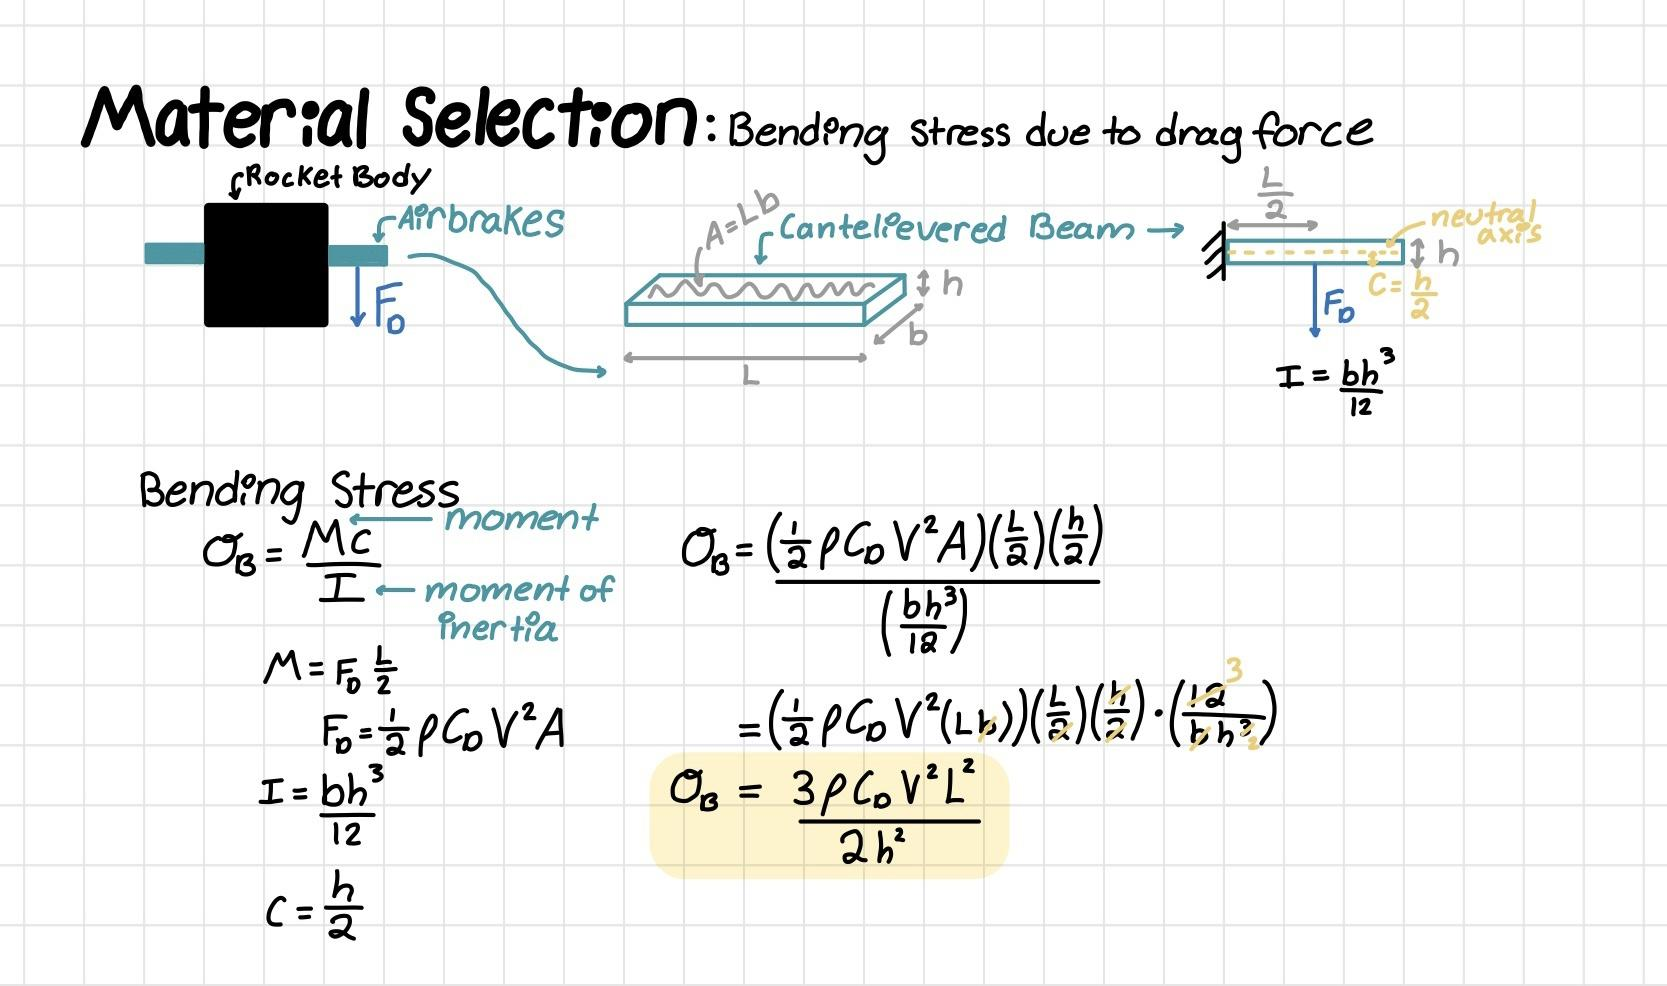 Material Selection: Bending stress due to drag force
Rocket Body
Airbrakes
F_D
A=Lb
Cantelievered Beam →
h
b
L
L/2
neutral axis
h
C=h/2
F_D
I=bh³/12
Bending Stress
σ_B=Mc/I
moment
moment of inertia
M=F_D L/2
F_D=1/2 ρC_D V²A
I=bh³/12
C=h/2
σ_B=(1/2 ρC_D V²A)(L/2)(h/2)/(bh³/12)
=(1/2 ρC_D V²(Lb))(L/2)(h/2)·(12/bh³)
3
2
σ_B = 3ρC_D V²L²/2h²